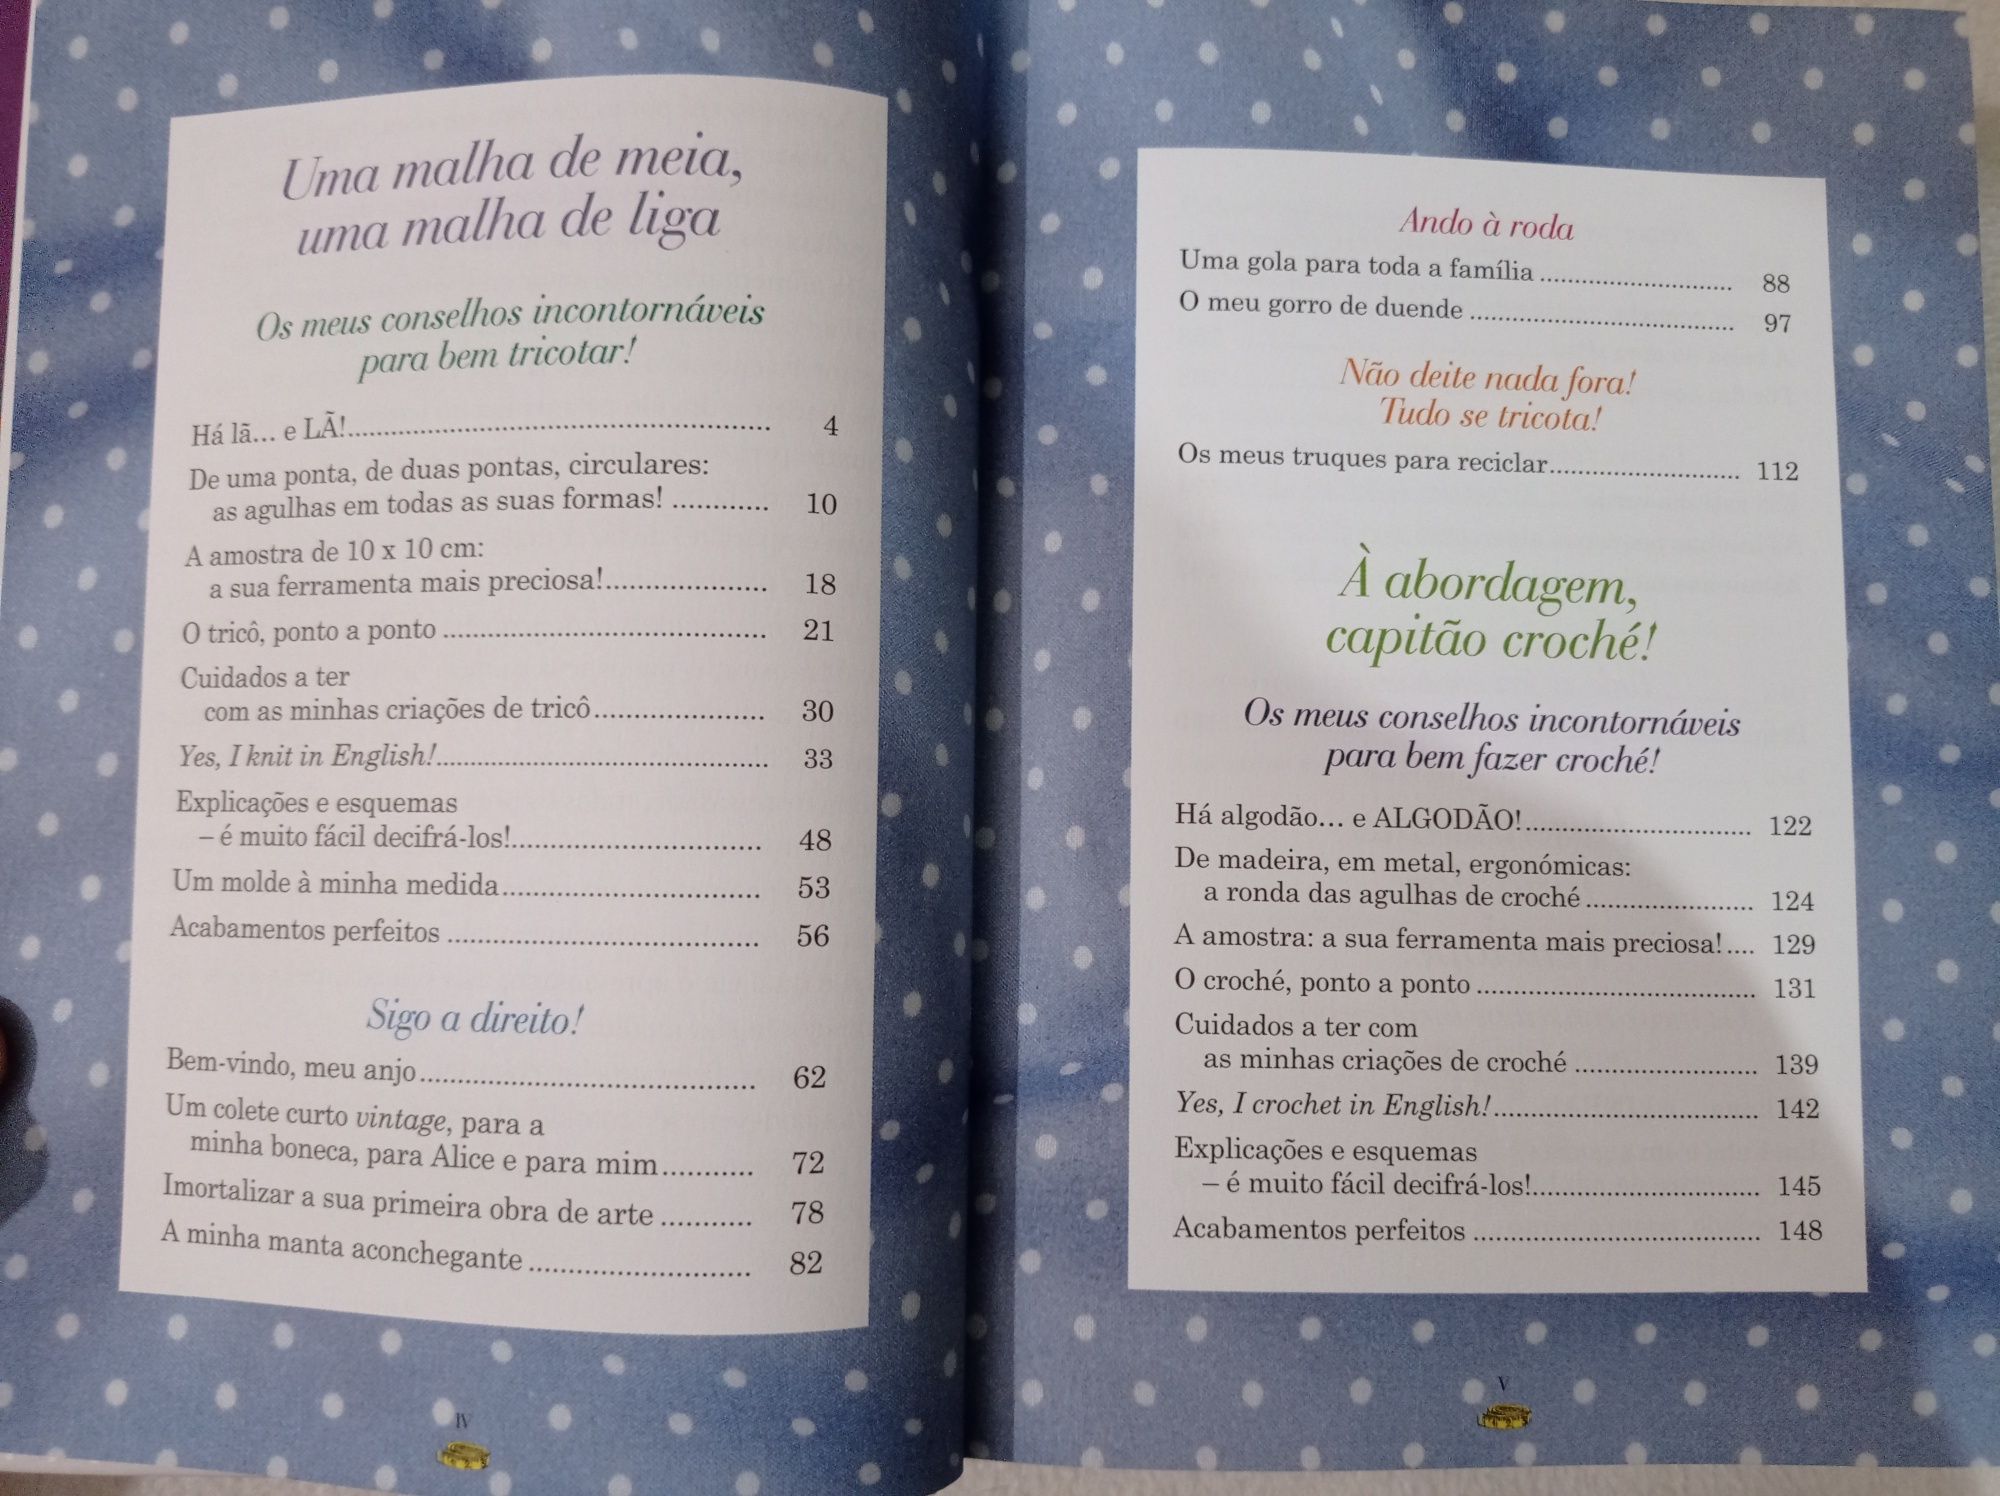 Uma malha de meia,
uma malha de liga
Os meus conselhos incontornáveis
para bem tricotar!
Há lã... e LÃ! 4
De uma ponta, de duas pontas, circulares:
as agulhas em todas as suas formas! 10
A amostra de 10 x 10 cm:
a sua ferramenta mais preciosa! 18
O tricô, ponto a ponto 21
Cuidados a ter
com as minhas criações de tricô 30
Yes, I knit in English! 33
Explicações e esquemas
– é muito fácil decifrá-los! 48
Um molde à minha medida 53
Acabamentos perfeitos 56
Sigo a direito!
Bem-vindo, meu anjo 62
Um colete curto vintage, para a
minha boneca, para Alice e para mim 72
Imortalizar a sua primeira obra de arte 78
A minha manta aconchegante 82
IV
Ando à roda
Uma gola para toda a família 88
O meu gorro de duende 97
Não deite nada fora!
Tudo se tricota!
Os meus truques para reciclar 112
À abordagem,
capitão croché!
Os meus conselhos incontornáveis
para bem fazer croché!
Há algodão... e ALGODÃO! 122
De madeira, em metal, ergonómicas:
a ronda das agulhas de croché 124
A amostra: a sua ferramenta mais preciosa! 129
O croché, ponto a ponto 131
Cuidados a ter com
as minhas criações de croché 139
Yes, I crochet in English! 142
Explicações e esquemas
– é muito fácil decifrá-los! 145
Acabamentos perfeitos 148
V